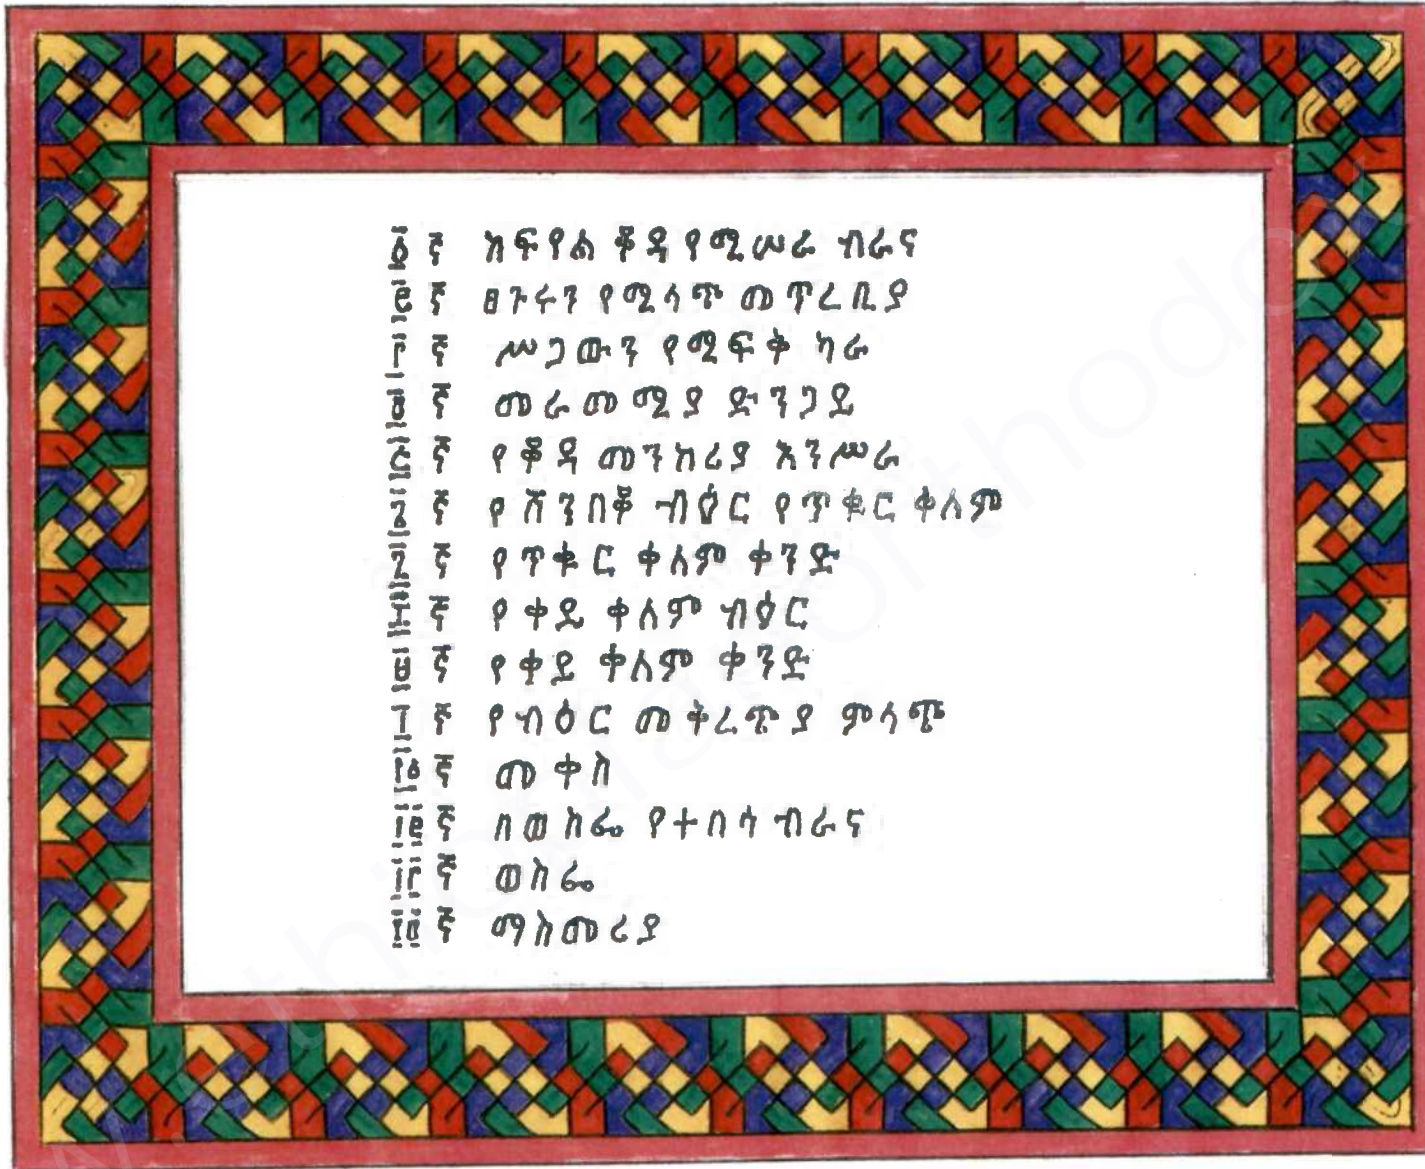 ፩ ኛ ከፍየል ቆዳ የሚሠራ ብራና
፪ ኛ ፀጉሩን የሚላጭ መጥረቢያ
፫ ኛ ሥጋውን የሚፍቅ ካራ
፬ ኛ መራመሚያ ድንጋይ
፭ ኛ የቆዳ መንከሪያ እንሥራ
፮ ኛ የሸንበቆ ብዕር የጥቁር ቀለም
፯ ኛ የጥቁር ቀለም ቀንድ
፰ ኛ የቀይ ቀለም ብዕር
፱ ኛ የቀይ ቀለም ቀንድ
፲ ኛ የብዕር መቅረጭያ ምላጭ
፲፩ ኛ መቀስ
፲፪ ኛ በወስፌ የተበሳ ብራና
፲፫ ኛ ወስፌ
፲፬ ኛ ማስመሪያ